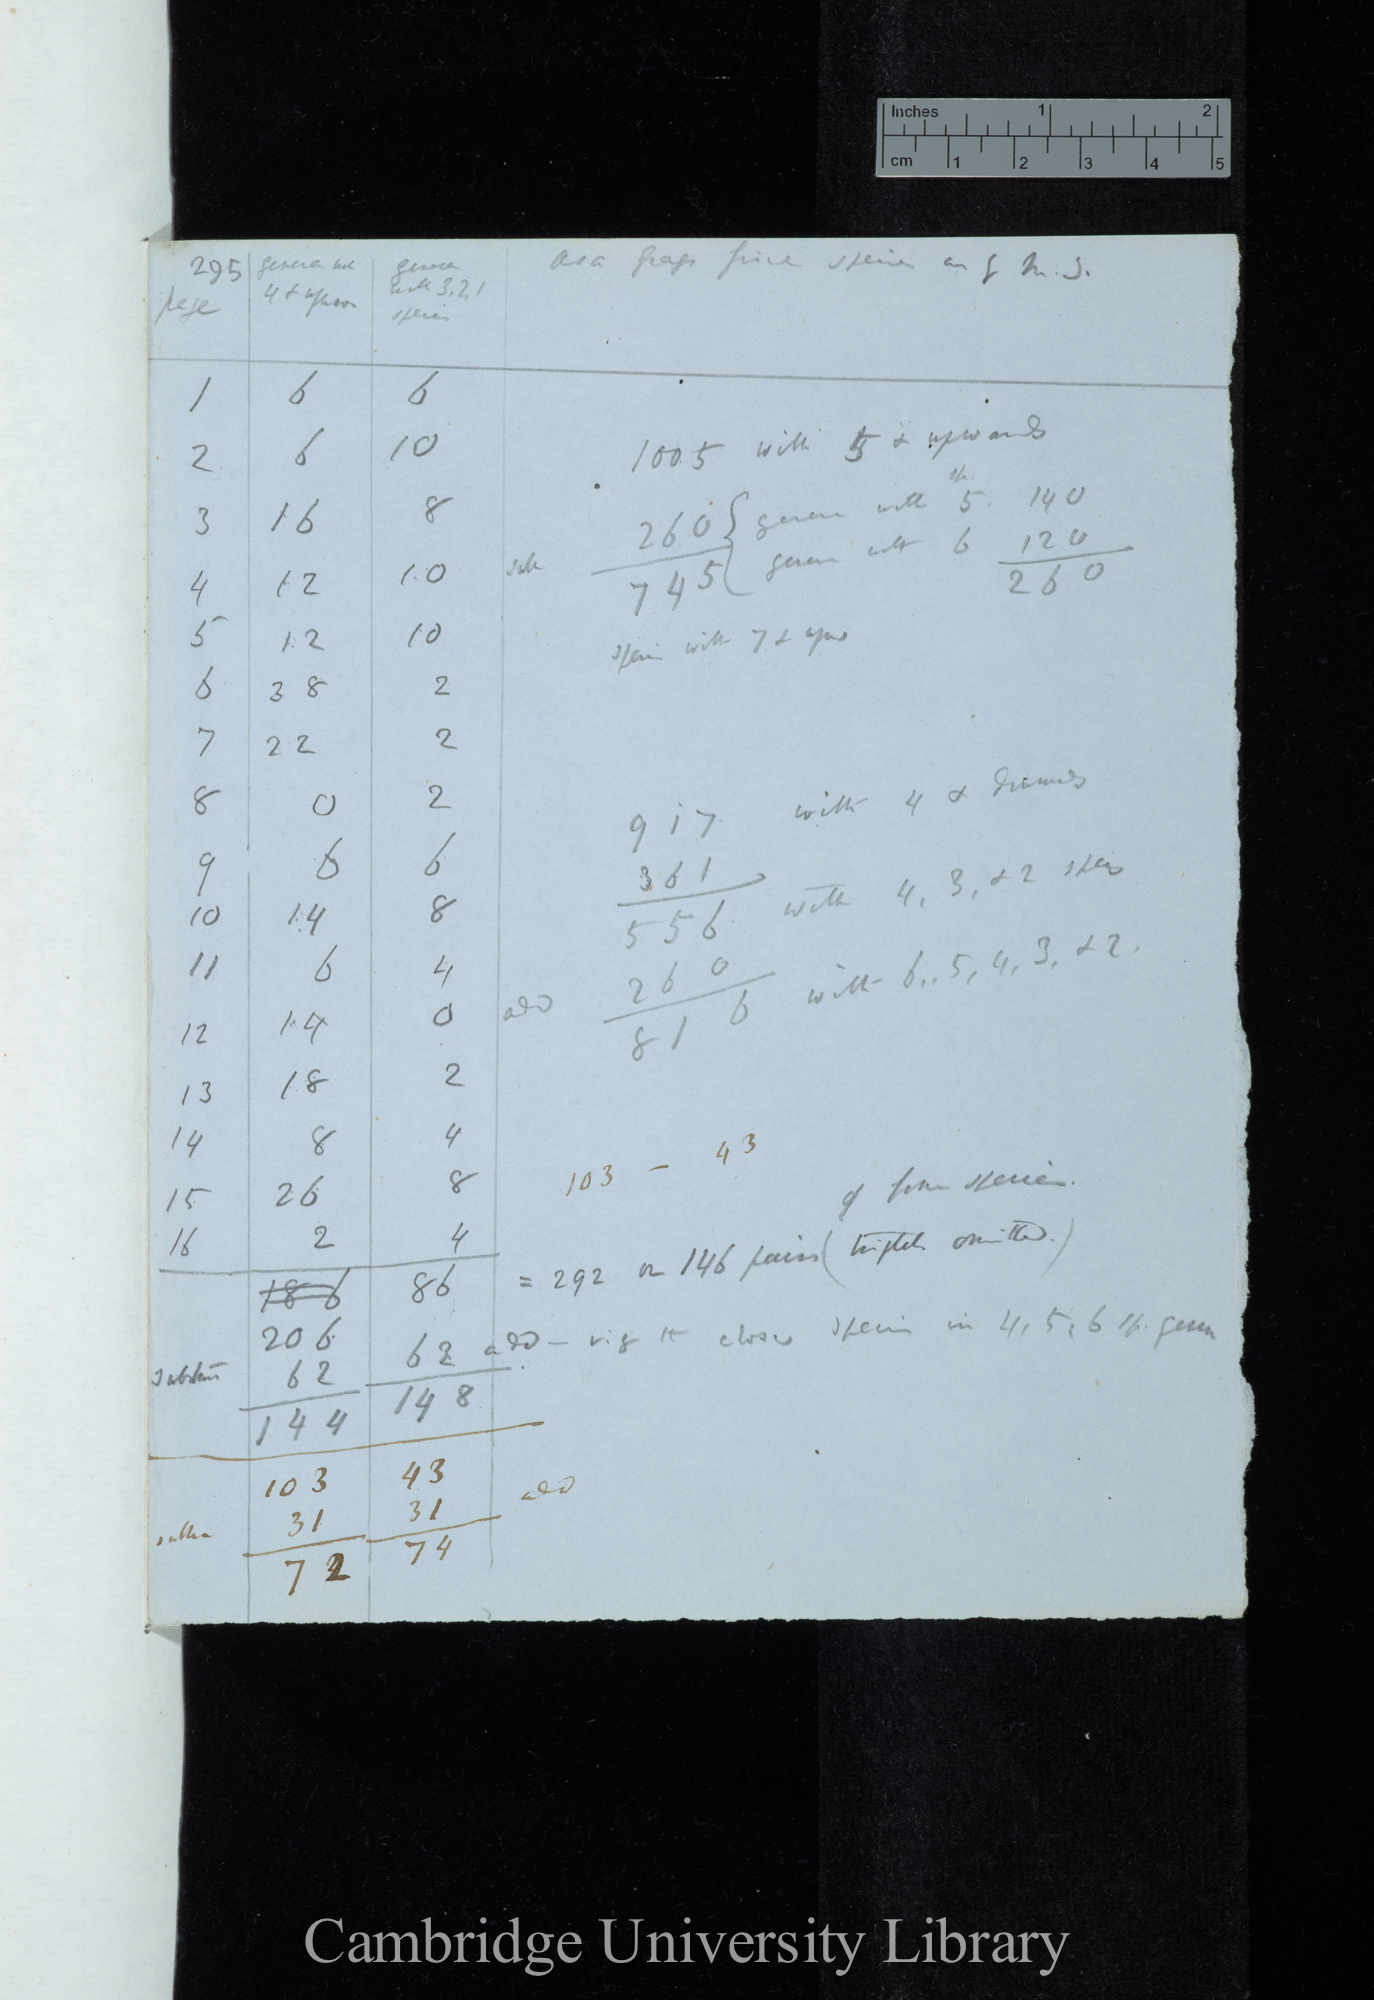 Inches 1 2
cm 1 2 3 4 5
295 genera
page 4 & upwards
genera with 3, 2, 1 species
Asa Grays species
1 6 6
2 6 10
3 16 8
4 12 10
5 12 10
6 38 2
7 22 2
8 0 2
9 6 6
10 14 8
11 6 4
12 14 0
13 18 2
14 8 4
15 26 8
16 2 4
186 86
206 62
62
144 148
103 43
31 31 add
72 74
1005 with 5 & upwards
260 genera with 5 sp. 140
745 genera with 6 120
260
with 7 & upws
917 with 4 & downwards
361
556 with 4, 3, & 2 species
add 260
816 with 6, 5, 4, 3, & 2.
103 - 43
= 292 or 146 pairs (triplets omitted.)
of species.
add - close species in 4, 5, 6 sp. genera
Cambridge University Library